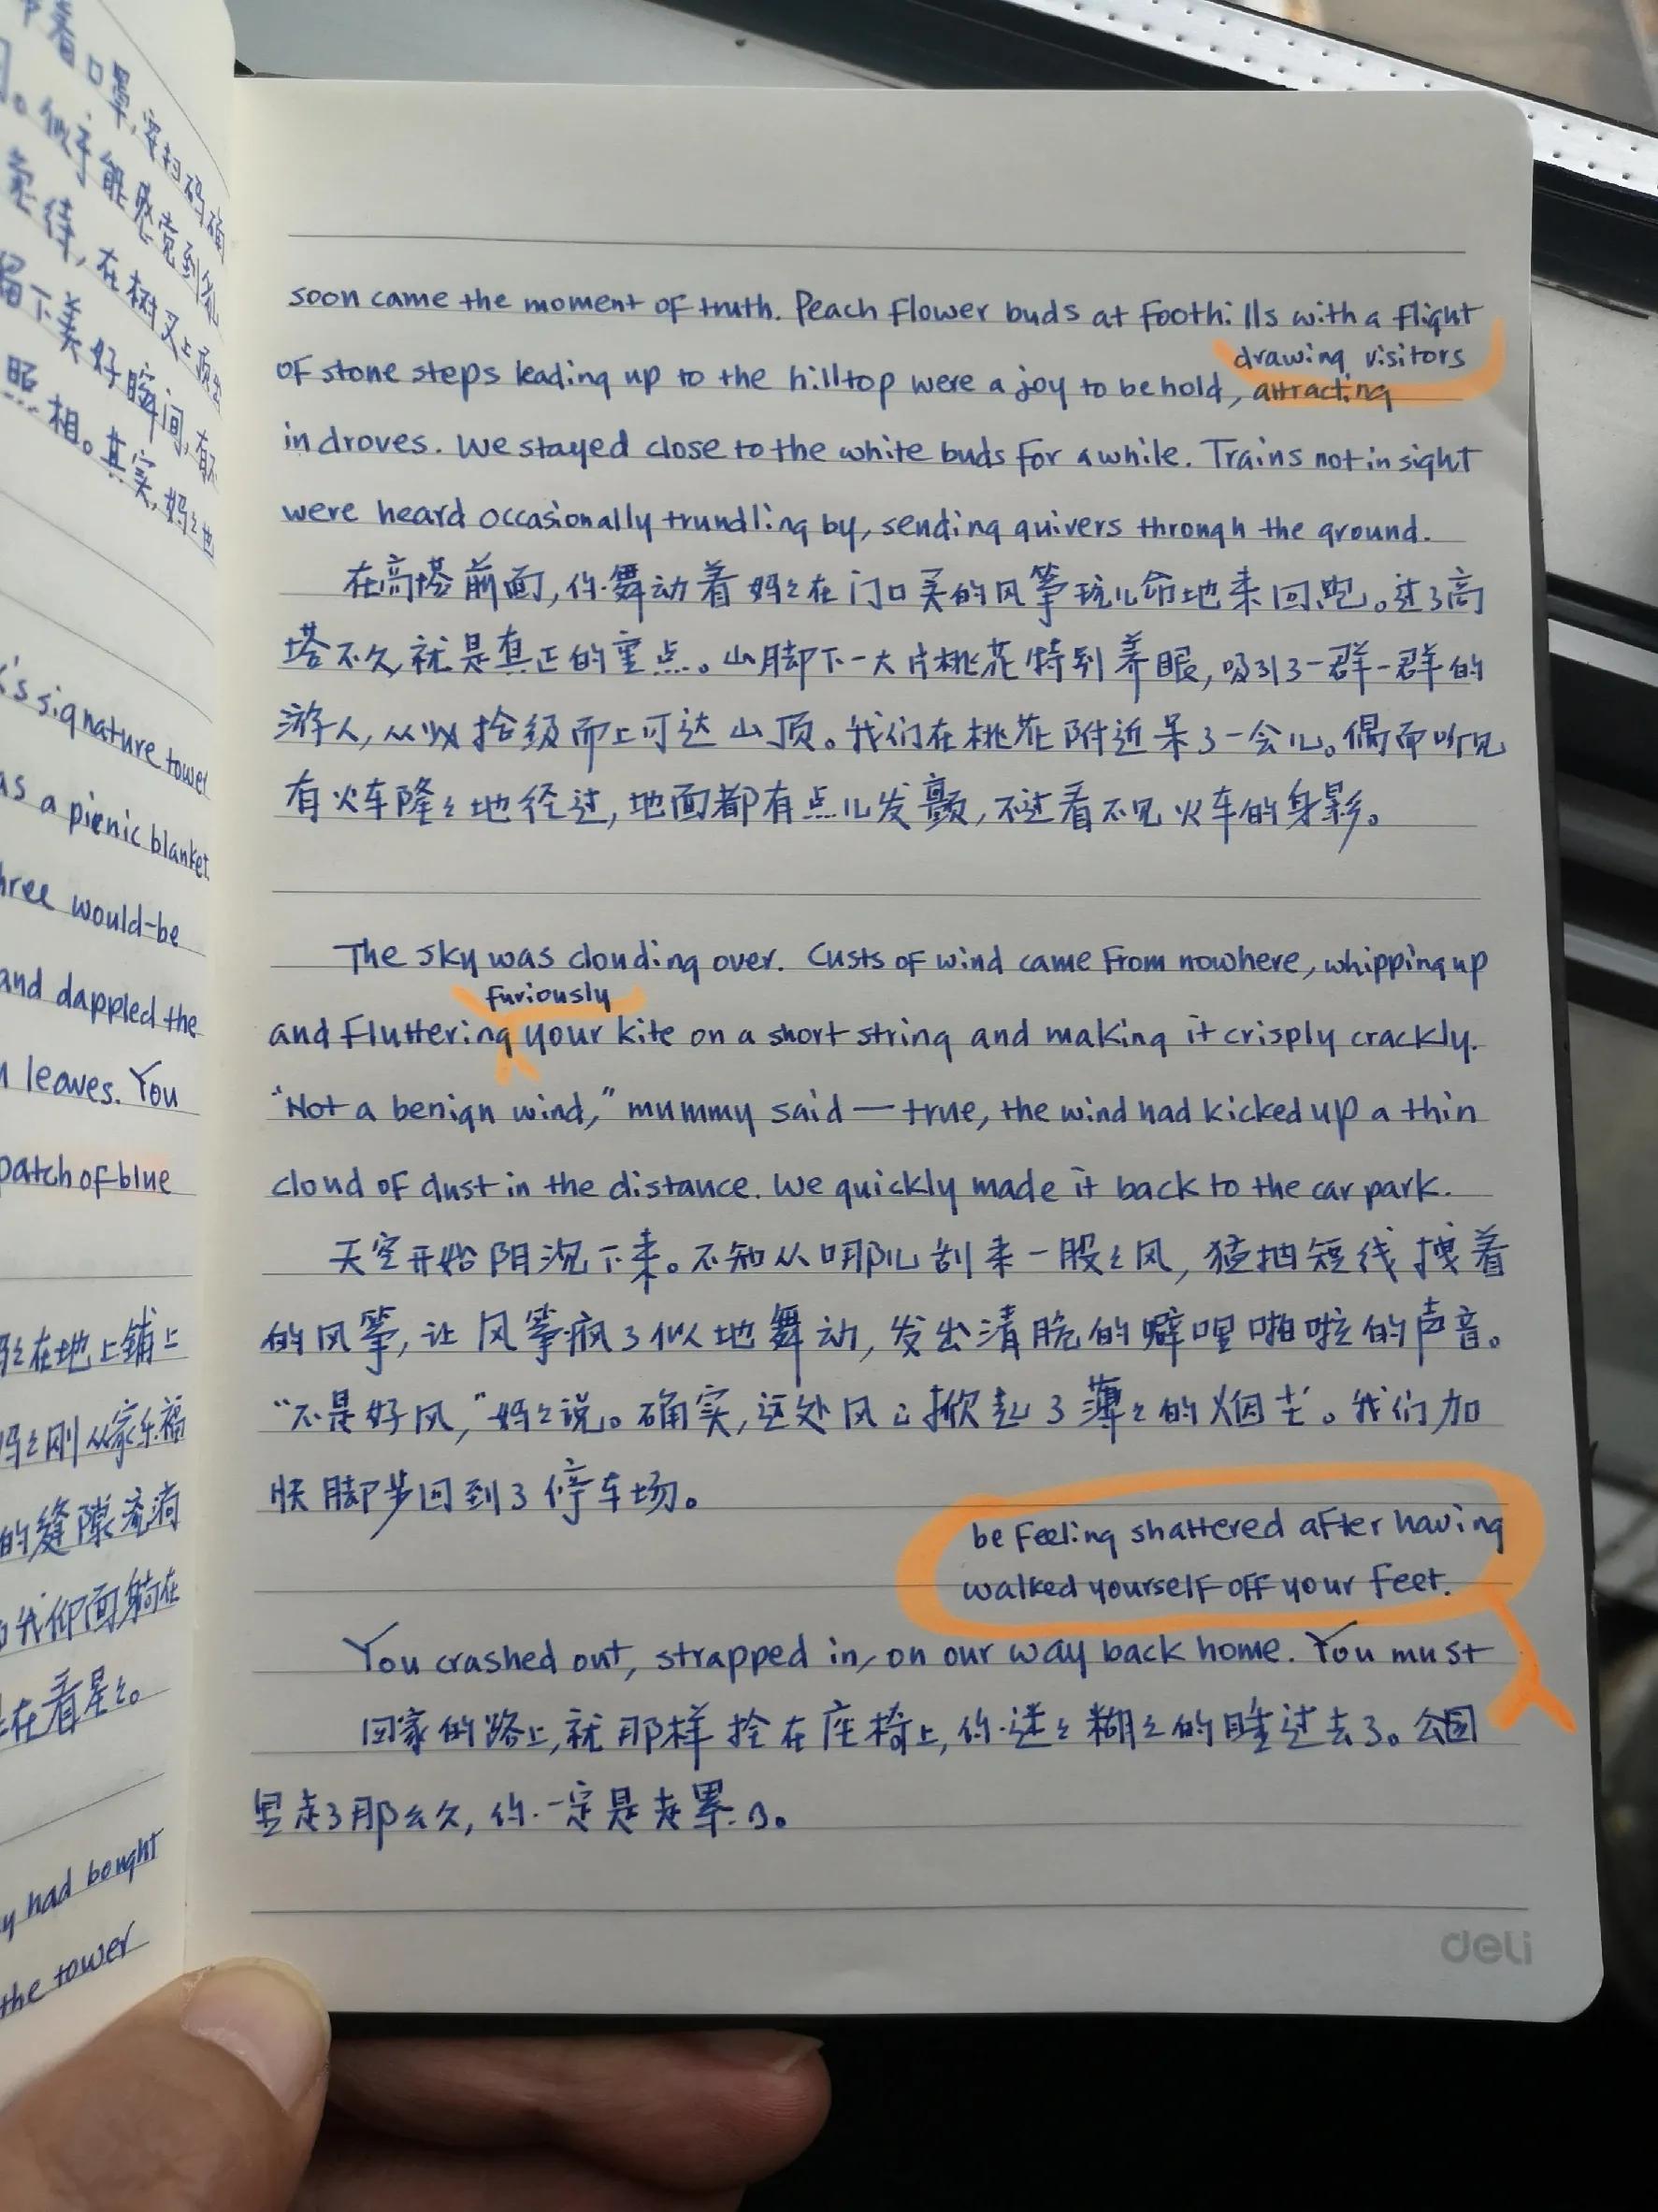 着口罩,要扫码确
。似乎能感觉到
待,在树叉上
留下美好瞬间,
照相。其实,妈々也
's signature tower
as a picnic blanket
three would-be
and dappled the
leaves. You
patch of blue
在地上铺上
妈々刚从家乐福
的缝隙流淌
我仰面躺在
在看星々。
had bought
the tower
soon came the moment of truth. Peach flower buds at foothills with a flight
drawing visitors
of stone steps leading up to the hilltop were a joy to behold, attracting
in droves. We stayed close to the white buds for a while. Trains not in sight
were heard occasionally trundling by, sending quivers through the ground.
在高塔前面,你舞动着妈々在门口买的风筝玩儿命地来回跑。过了高
塔不久就是真正的重点。山脚下一大片桃花特别养眼,吸引了一群一群的
游人,从此拾级而上可达山顶。我们在桃花附近呆了一会儿。偶而听见
有火车隆々地经过,地面都有点儿发颤,不过看不见火车的身影。
The sky was clouding over. Gusts of wind came from nowhere, whipping up
furiously
and fluttering your kite on a short string and making it crisply crackly.
"Not a benign wind," mummy said — true, the wind had kicked up a thin
cloud of dust in the distance. We quickly made it back to the car park.
天空开始阴沉下来。不知从哪儿刮来一股々风,猛抽短线拽着
的风筝,让风筝疯了似地舞动,发出清脆的噼哩啪啦的声音。
"不是好风,"妈々说。确实,远处风已掀起了薄々的烟尘。我们加
快脚步回到了停车场。
be feeling shattered after having
walked yourself off your feet.
You crashed out, strapped in, on our way back home. You must
回家的路上,就那样拴在座椅上,你迷々糊々的睡过去了。公园
里走了那么久,你一定是走累了。
deli